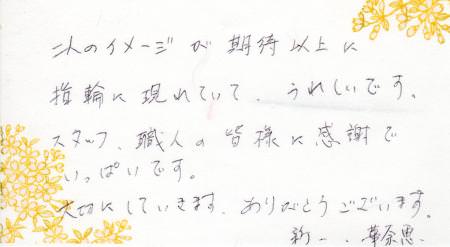 二人のイメージが期待以上に
指輪に現れていて、うれしいです。
スタッフ、職人の皆様に感謝で
いっぱいです。
大切にしていきます。ありがとうございます。
新一、